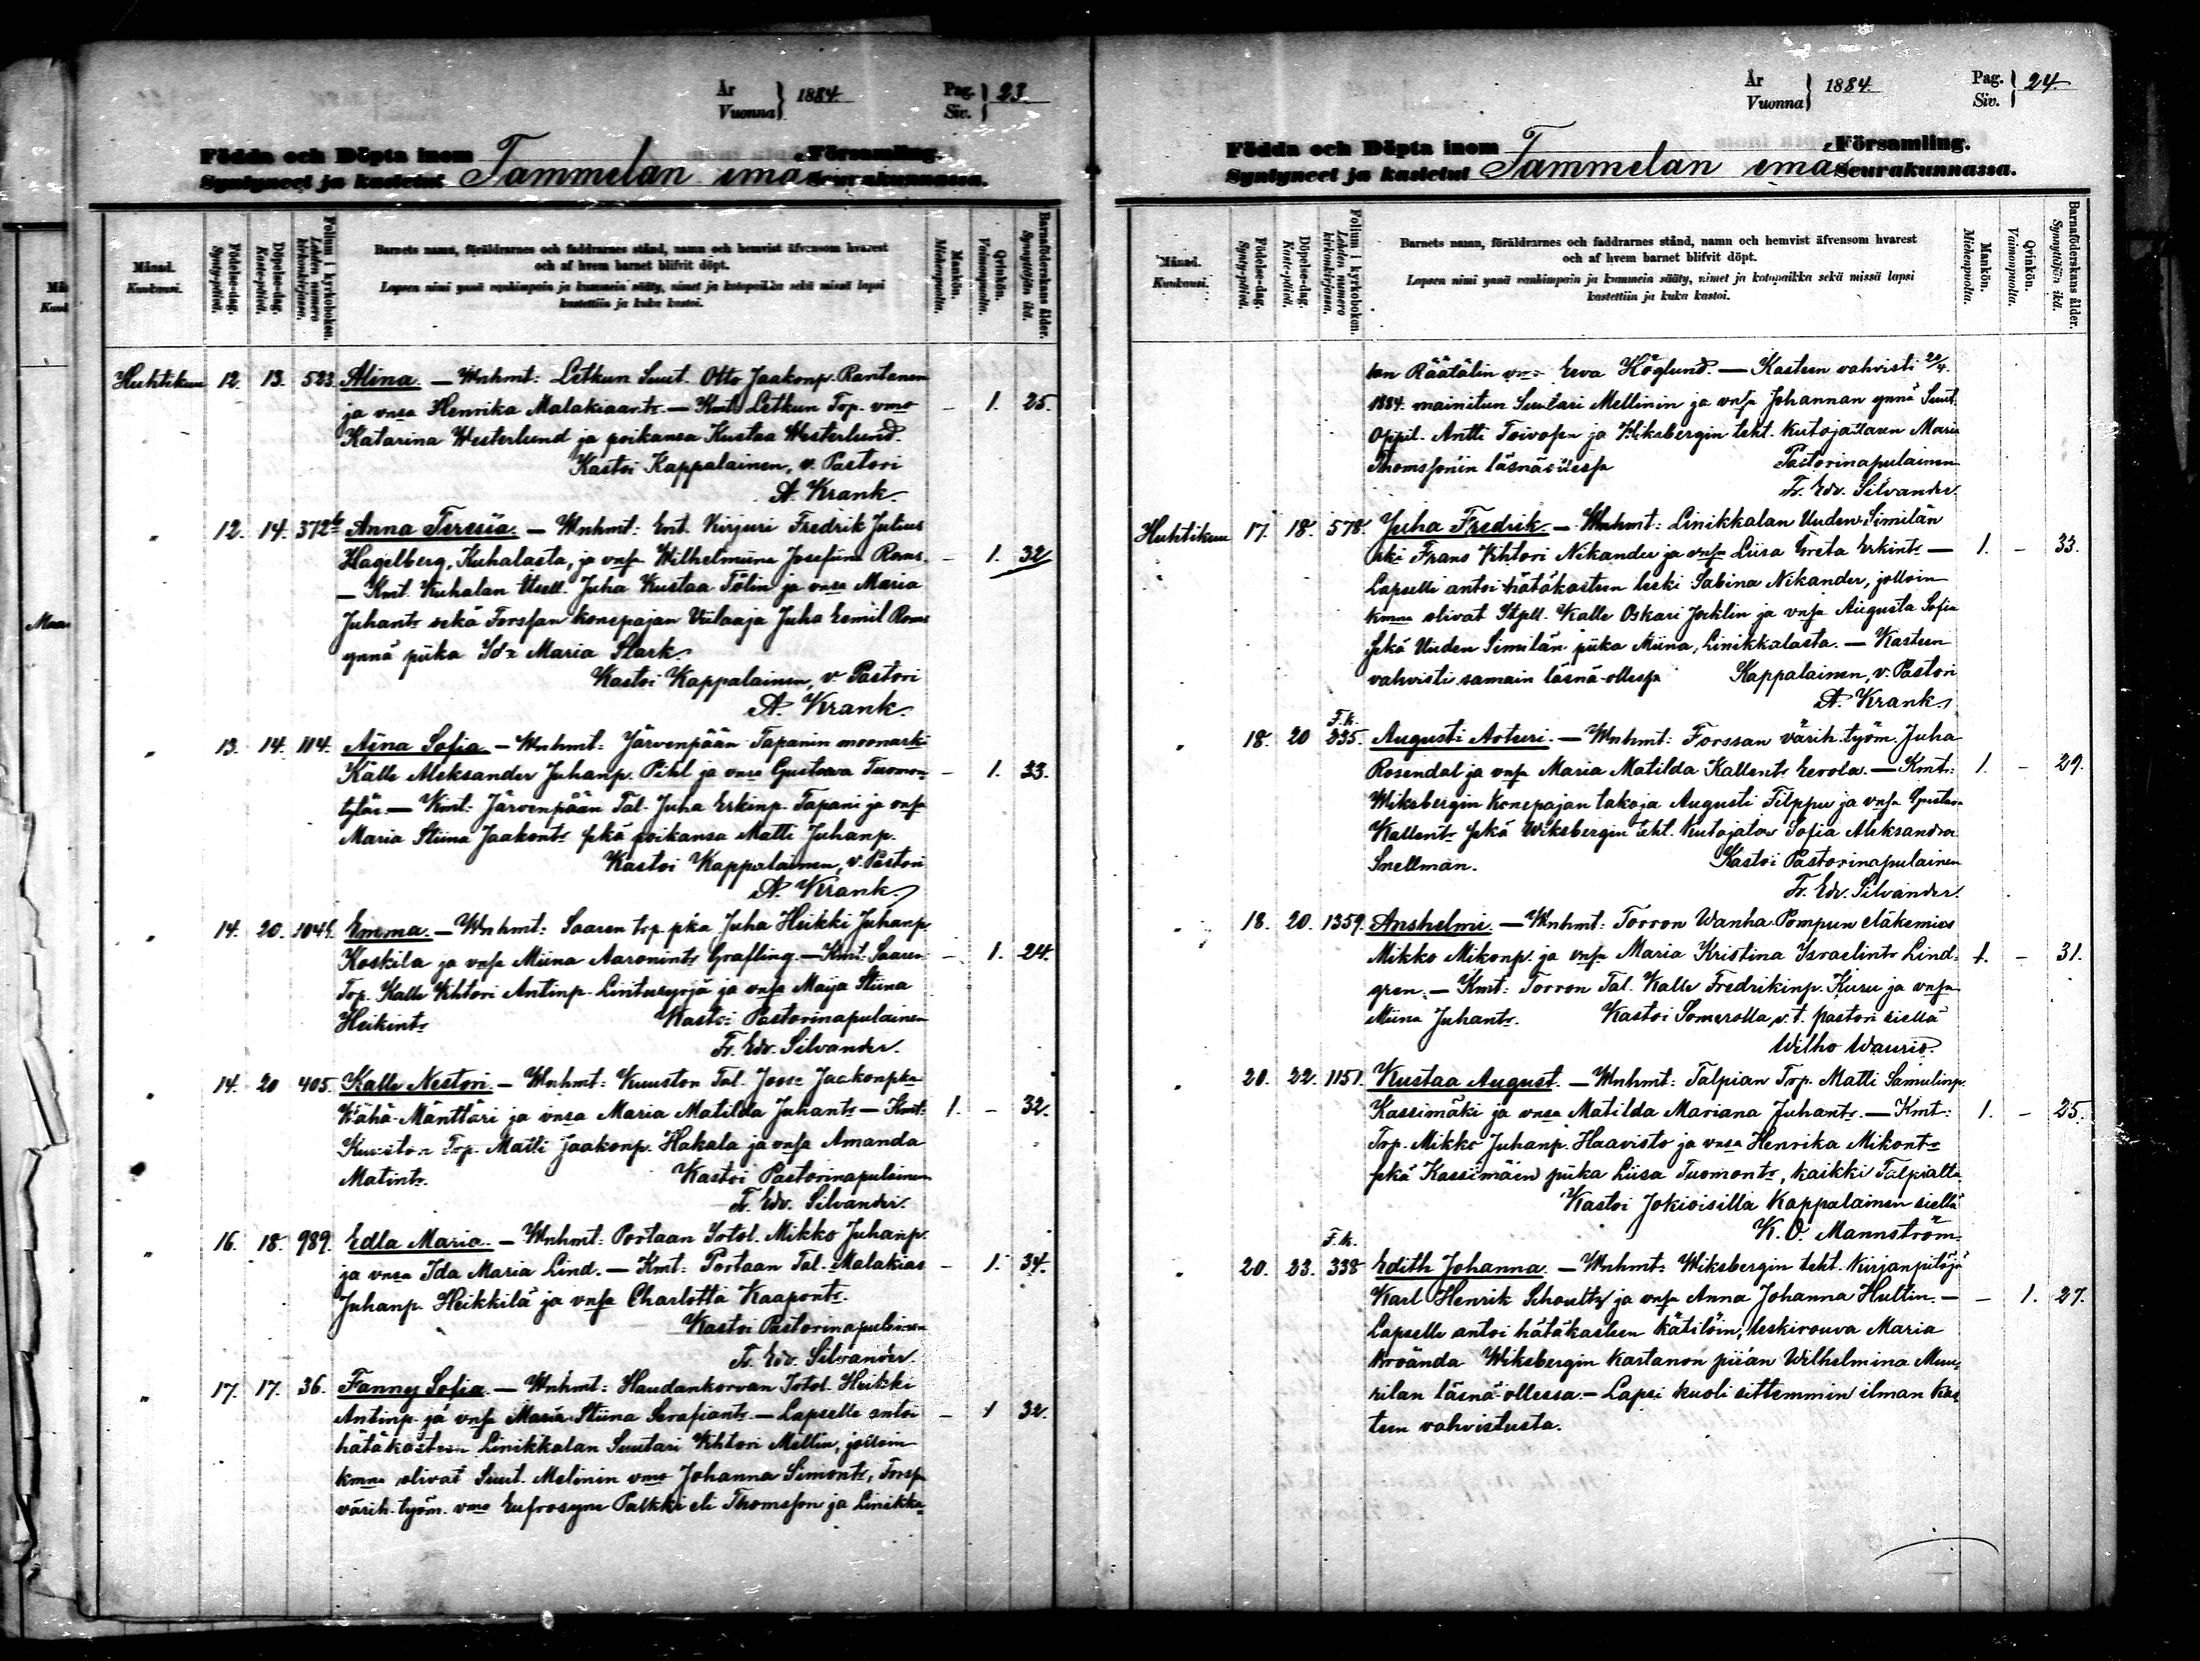 År
Vuonna } 1884.
Pag.
Siv. } 23.
Födda och Döpta inom
Syntyneet ja kastetut Tammelan emä Församling.
Seurakunnassa.
Månad.
Kuukausi.
Födelse-dag.
Synty-päivä.
Döpelse-dag.
Kaste-päivä.
Folium i kyrkoboken.
Lehden numero kirkonkirjassa.
Barnets namn, föräldrarnes och faddrarnes stånd, namn och hemvist äfvensom hvarest
och af hvem barnet blifvit döpt.
Lapsen nimi ynnä vanhimpain ja kummein sääty, nimet ja kotopaikka sekä missä lapsi
kastettiin ja kuka kastoi.
Mankön.
Miehenpuolta.
Qvinkön.
Vaimonpuolta.
Barnaföderskans ålder.
Synnyttäjän ikä.
Huhtikuu 12. 13. 523. Alina. — Wnhmt: Letkun Suut. Otto Jaakonp. Rantanen
ja vnsa Henrika Malakiaantr. — Kmt: Letkun Trp. vmo — 1. 25.
Katarina Westerlund ja poikansa Kustaa Westerlund.
Kastoi Kappalainen, v. Pastori
A. Krank.
" 12. 14. 372 Anna Teresia. — Wnhmt: Ent. Kirjuri Fredrik Julius
Hagelberg, Kuhalasta, ja vnsa Wilhelmiina Josefiina Roms. — 1. 32
— Kmt. Kuhalan Juha Kustaa Tölin ja vnsa Maria
Juhantr sekä Forssan konepajan Viilaaja Juha Eemil Roms
ynnä piika Ida Maria Stark.
Kastoi Kappalainen, v. Pastori
A. Krank.
" 13. 14. 114. Aina Sofia. — Wnhmt: Järvenpään Tapanin moonarki
Kalle Aleksander Juhanp. Pihl ja vnsa Gustava Tuomon — 1. 33.
tytär. — Kmt: Järvenpään Tal. Juha Erkinp. Tapani ja vnsa
Maria Stiina Jaakontr sekä poikansa Matti Juhanp.
Kastoi Kappalainen, v. Pastori
A. Krank
" 14. 20. 1049. Emma. — Wnhmt: Saaren trp. pka Juha Heikki Juhanp.
Koskila ja vnsa Miina Aaronintr Grafling. — Kmt: Saaren — 1. 24.
Trp. Kalle Vihtori Antinp. Lintusyrjä ja vnsa Maija Stiina
Heikintr Kastoi Pastorinapulainen
Fr. Edv. Silvander.
" 14. 20 405. Kalle Nestori — Wnhmt: Kuuston Tal. Joose Jaakonpka
Wähä-Mänttäri ja vnsa Maria Matilda Juhantr — Kmt: 1. — 32.
Kuuston Trp. Matti Jaakonp. Hakala ja vnsa Amanda
Matintr. Kastoi Pastorinapulainen
Fr. Edv. Silvander.
" 16. 18. 989. Edla Maria. — Wnhmt: Portaan Itstol. Mikko Juhanp.
ja vnsa Ida Maria Lind. — Kmt: Portaan Tal. Malakias — 1. 34.
Juhanp. Heikkilä ja vnsa Charlotta Kaapontr.
Kastoi Pastorinapulainen
Fr. Edv. Silvander.
" 17. 17. 36. Fanny Sofia. — Wnhmt: Haudankorvan Itstol. Heikki
Antinp. ja vnsa Maria Stiina Serafiantr. — Lapselle antoi — 1 32.
hätäkasteen Linikkalan Suutari Vihtori Mellin, jolloin
kmna olivat Suut. Melinin vmo Johanna Simontr, Forss.
värih. työm. vmo Eufrosyne Palkki eli Thomsson ja Linikka-
År
Vuonna } 1884.
Pag.
Siv. } 24.
Födda och Döpta inom
Syntyneet ja kastetut Tammelan emä Församling.
Seurakunnassa.
Månad.
Kuukausi.
Födelse-dag.
Synty-päivä.
Döpelse-dag.
Kaste-päivä.
Folium i kyrkoboken.
Lehden numero kirkonkirjassa.
Barnets namn, föräldrarnes och faddrarnes stånd, namn och hemvist äfvensom hvarest
och af hvem barnet blifvit döpt.
Lapsen nimi ynnä vanhimpain ja kummein sääty, nimet ja kotopaikka sekä missä lapsi
kastettiin ja kuka kastoi.
Mankön.
Miehenpuolta.
Qvinkön.
Vaimonpuolta.
Barnaföderskans ålder.
Synnyttäjän ikä.
lan Räätälin vmo Eeva Höglund. — Kasteen vahvisti 20/4.
1884. mainitun Suutari Mellinin ja vnsa Johannan ynnä Suut.
Oppil. Antti Toivosen ja Wiksbergin teht. kutojattaren Maria
Thomssonin läsnäollessa Pastorinapulainen
Fr. Edv. Silvander.
Huhtikuu 17. 18. 578. Juha Fredrik. — Wnhmt: Linikkalan Uuden-Similän
Frans Vihtori Nikander ja vnsa Liisa Greta Erkintr — 1. — 33.
Lapselle antoi hätäkasteen leski Sabina Nikander, jolloin
kmna olivat Itpll. Kalle Oskari Jocklin ja vnsa Augusta Sofia
sekä Uuden Similän piika Miina, Linikkalasta. — Kasteen
vahvisti samain läsnä-ollessa Kappalainen, v. Pastori
A. Krank.
" 18. 20 F.k. 235. Augusti Arturi. — Wnhmt: Forssan värih. työm. Juha
Rosendal ja vnsa Maria Matilda Kallentr Eerola. — Kmt: 1. — 29.
Wiksbergin Konepajan takoja Augusti Filppu ja vnsa Gustava
Kallentr sekä Wiksbergin teht. Kutojatar Sofia Aleksandra
Snellman. Kastoi Pastorinapulainen
Fr. Edv. Silvander.
" 18. 20. 1359. Anshelmi. — Wnhmt: Torron Wanha-Pompun eläkemies
Mikko Mikonp. ja vnsa Maria Kristina Israelintr Lind- 1. — 31.
gren. — Kmt: Torron Tal. Kalle Fredrikinp. Kuru ja vnsa
Miina Juhantr. Kastoi Somerolla, v.t. pastori siellä
Wilho Waurio.
" 20. 22. 1151. Kustaa August. — Wnhmt: Talpian Trp. Matti Samulinp.
Kassimäki ja vnsa Matilda Mariana Juhantr. — Kmt: 1. — 25.
Trp. Mikko Juhanp. Haavisto ja vnsa Henrika Mikontr
sekä Kassimäen piika Liisa Tuomontr, kaikki Talpialta
Kastoi Jokioisilla Kappalainen siellä
K. O. Mannström.
" 20. 23. F.k. 338 Edith Johanna. — Wnhmt: Wiksbergin teht. Kirjanpitäjä
Karl Henrik Schoultz ja vnsa Anna Johanna Hultin. — — 1. 27.
Lapselle antoi hätäkasteen kätilöin, leskirouva Maria
Wiksbergin kartanon piian Wilhelmina Muu-
rilan läsnä-ollessa. — Lapsi kuoli sittemmin ilman kas-
teen vahvistusta.